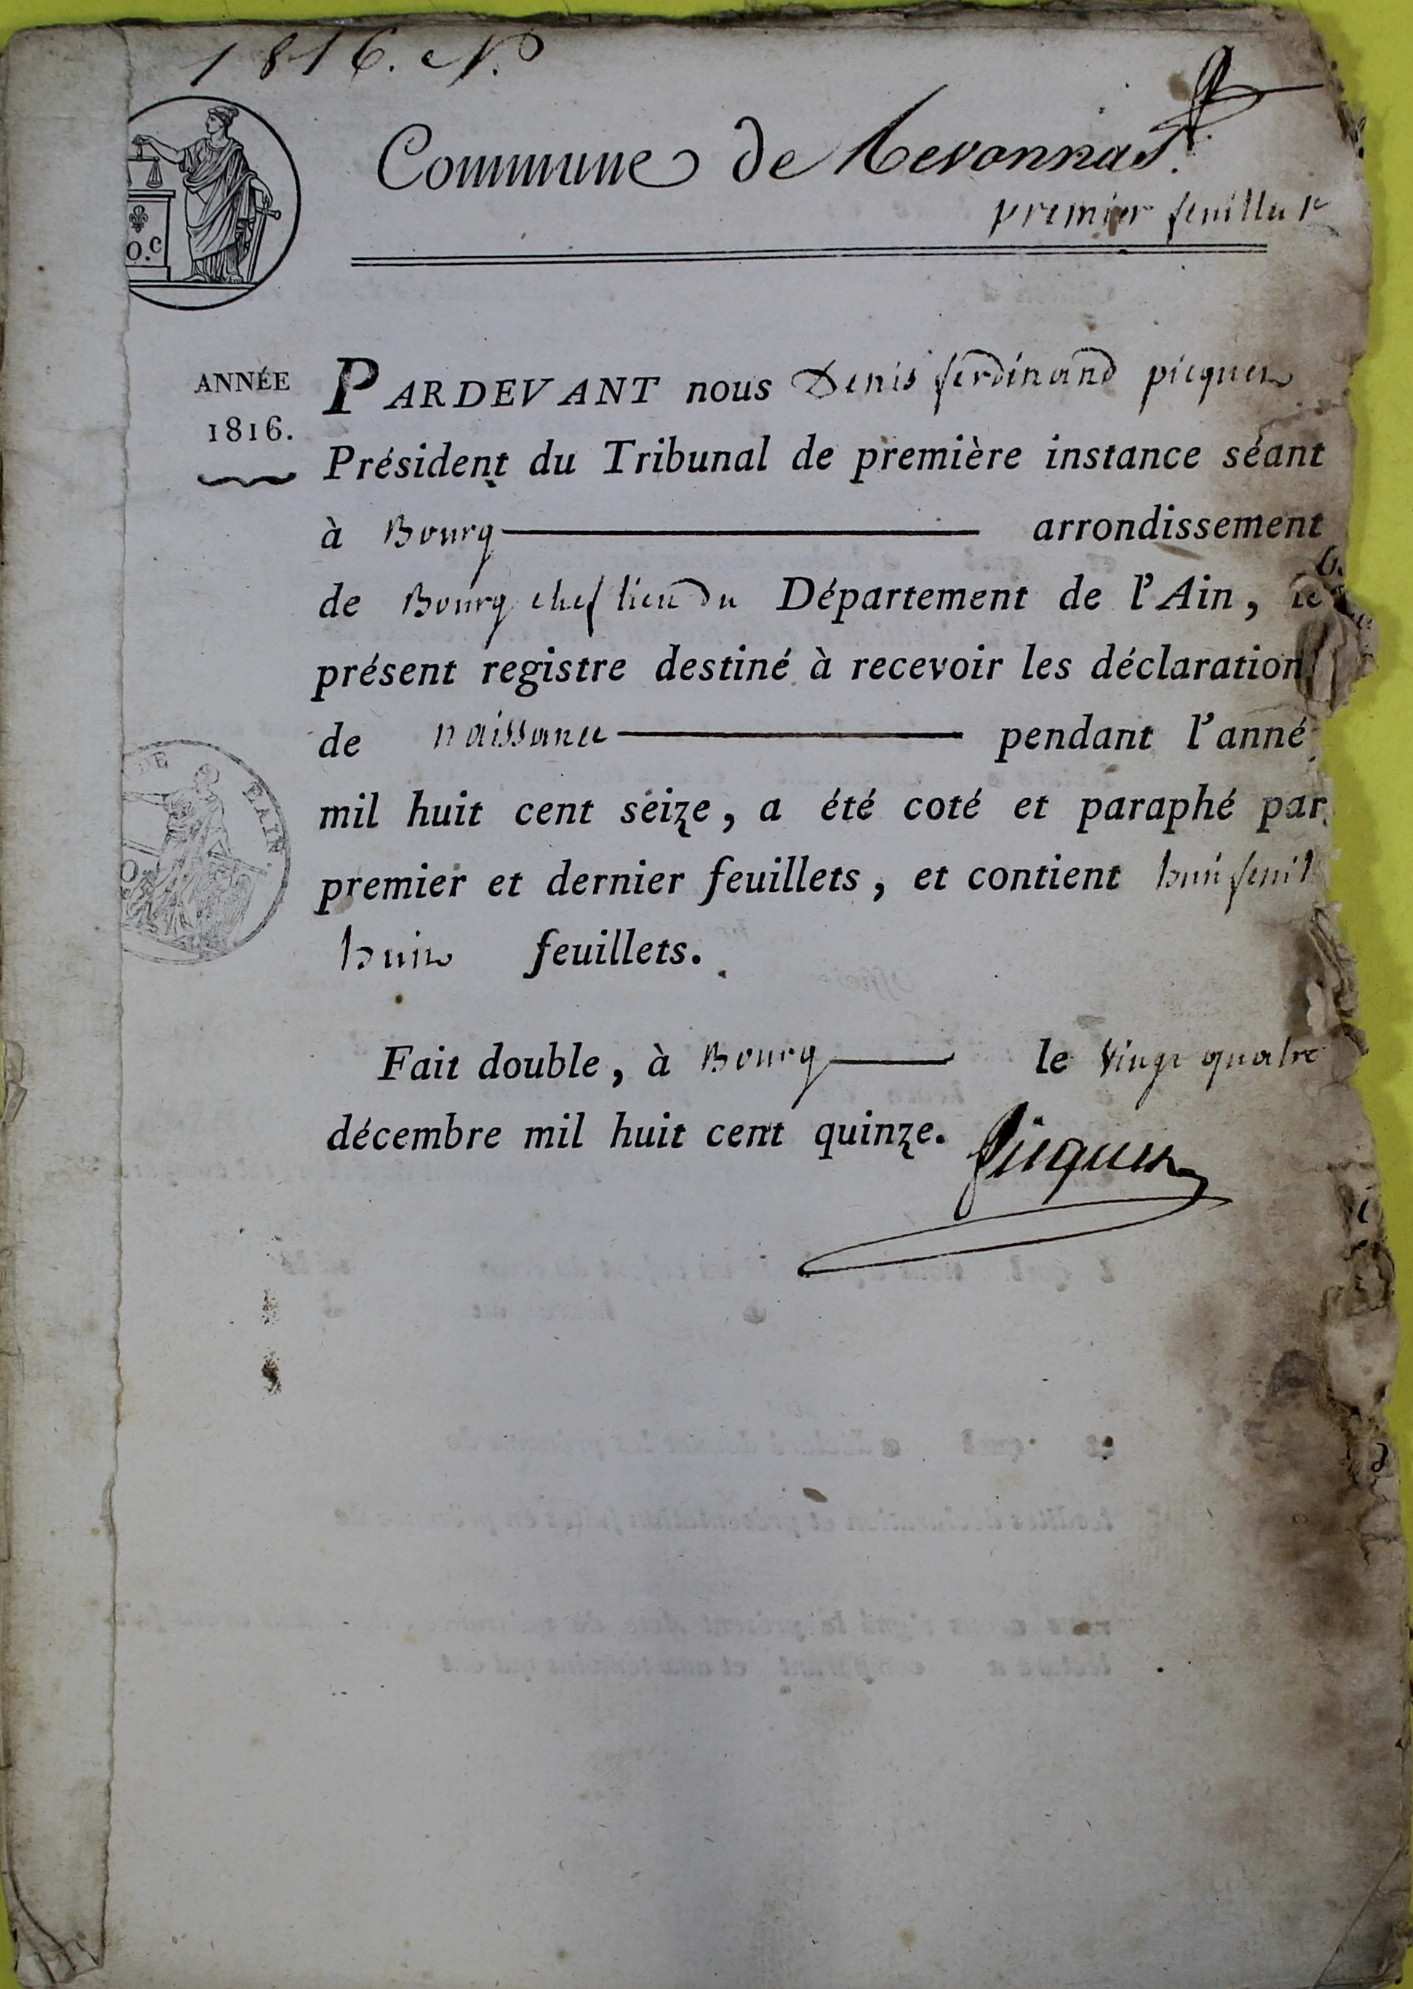 1816. N.
Commune de Revonnas.
premier feuillet
O.c
ANNÉE
1816.
PARDEVANT nous Denis ferdinand picquet
Président du Tribunal de première instance séant
à Bourg arrondissement
de Bourg chef lieu du Département de l'Ain, le
présent registre destiné à recevoir les déclaration
de naissance pendant l'anné
mil huit cent seize, a été coté et paraphé par
premier et dernier feuillets, et contient huit feuil
huit feuillets.
Fait double, à Bourg le vingt quatre
décembre mil huit cent quinze.
Picquet